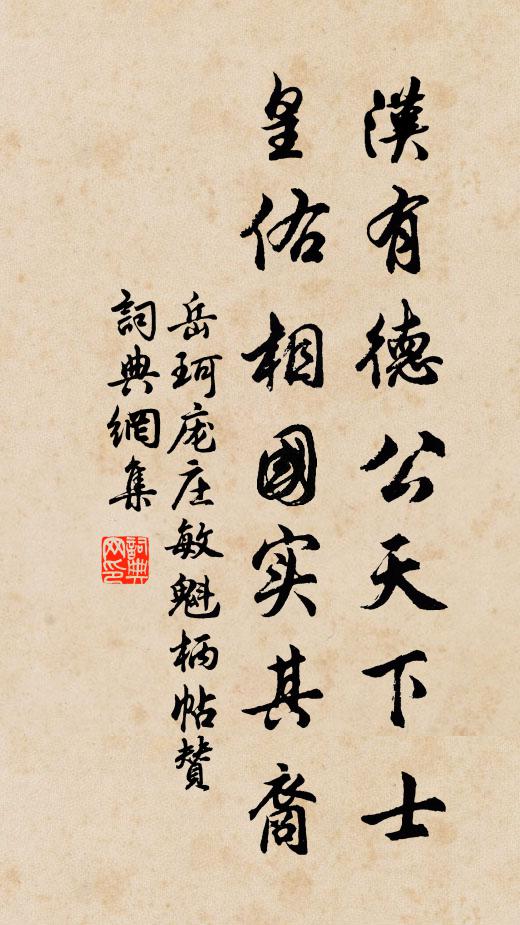 漢有德公天下士
皇佑相國实其裔
岳珂庞庄敏魁柄帖贊
詞典網集
詞典网印